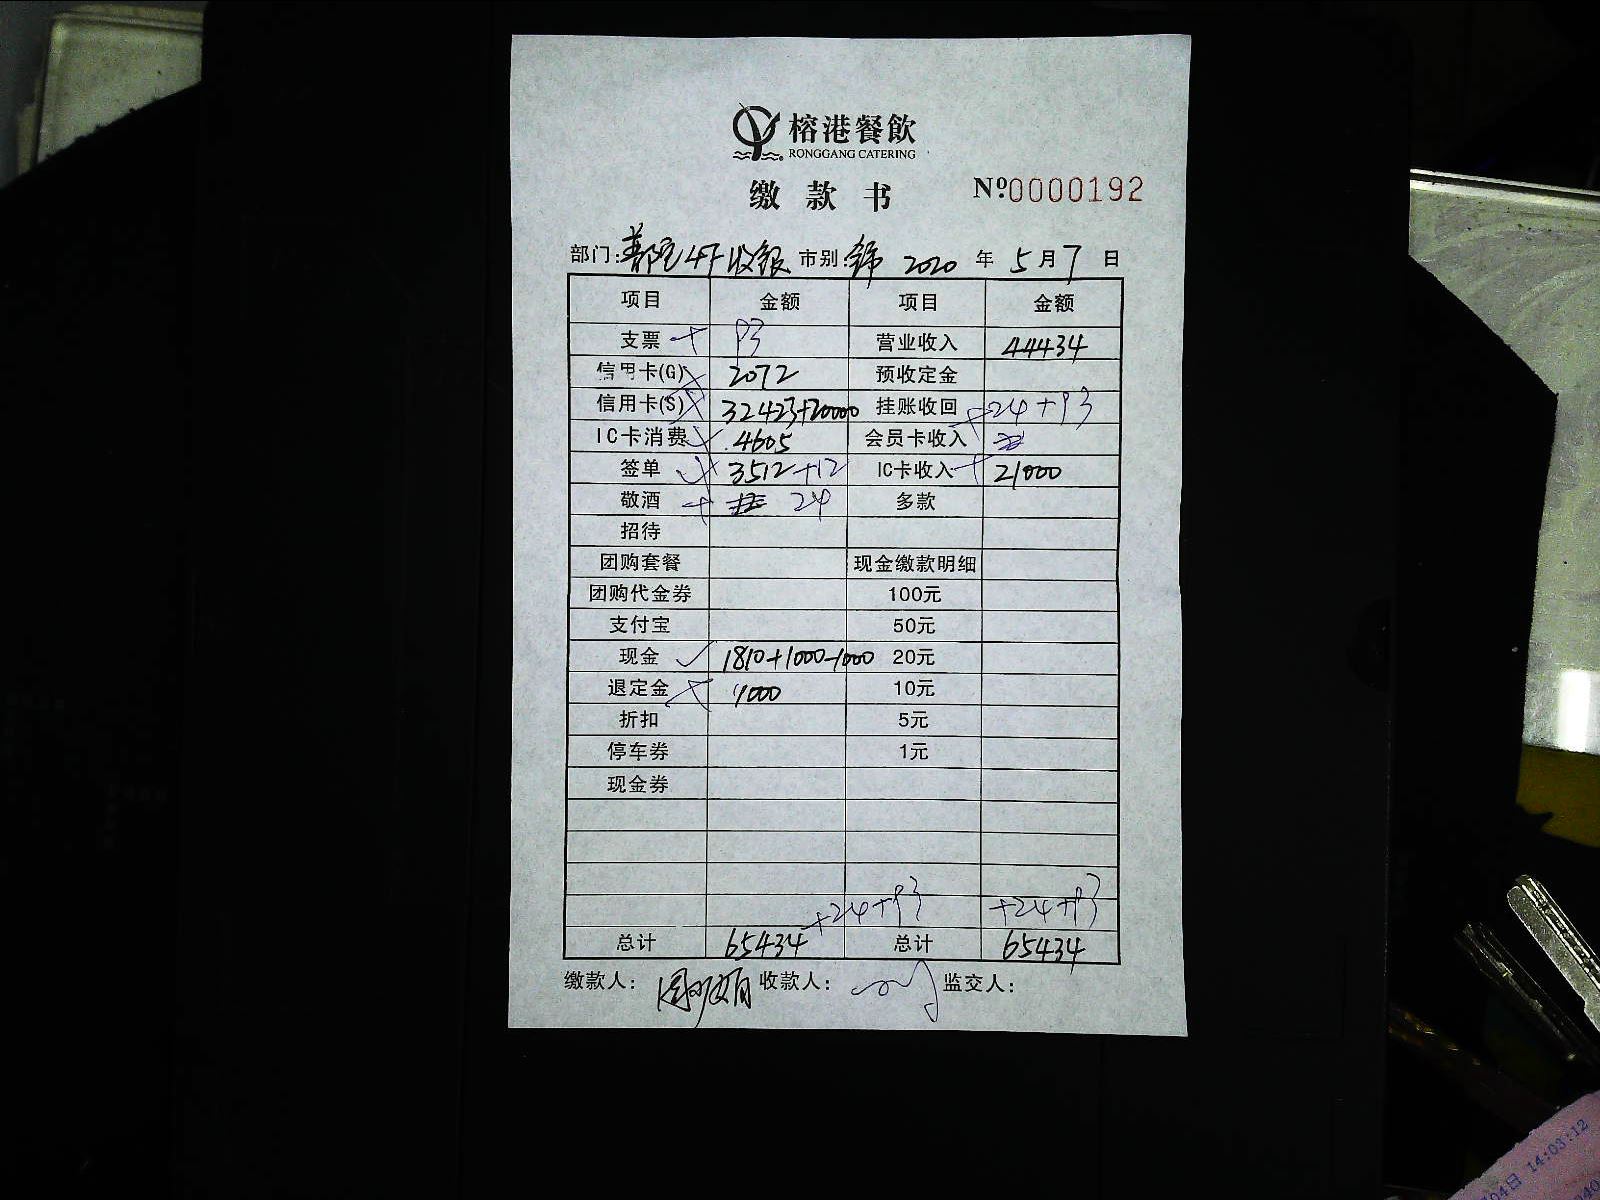 榕港餐飲
RONGGANG CATERING
缴款书 №0000192
部门: 普陀4F收银 市别: 2020年5月7日
项目 金额 项目 金额
支票 93 营业收入 44434
信用卡(G) 2072 预收定金
信用卡(S) 32423+20000 挂账收回 +24+93
IC卡消费 4605 会员卡收入
签单 3512+12 IC卡收入 21000
敬酒 24 多款
招待
团购套餐 现金缴款明细
团购代金券 100元
支付宝 50元
现金 1810+1000-1000 20元
退定金 1000 10元
折扣 5元
停车券 1元
现金券
+24+93 +24+93
总计 65434 总计 65434
缴款人: 收款人: 监交人:
04日 14:03:12